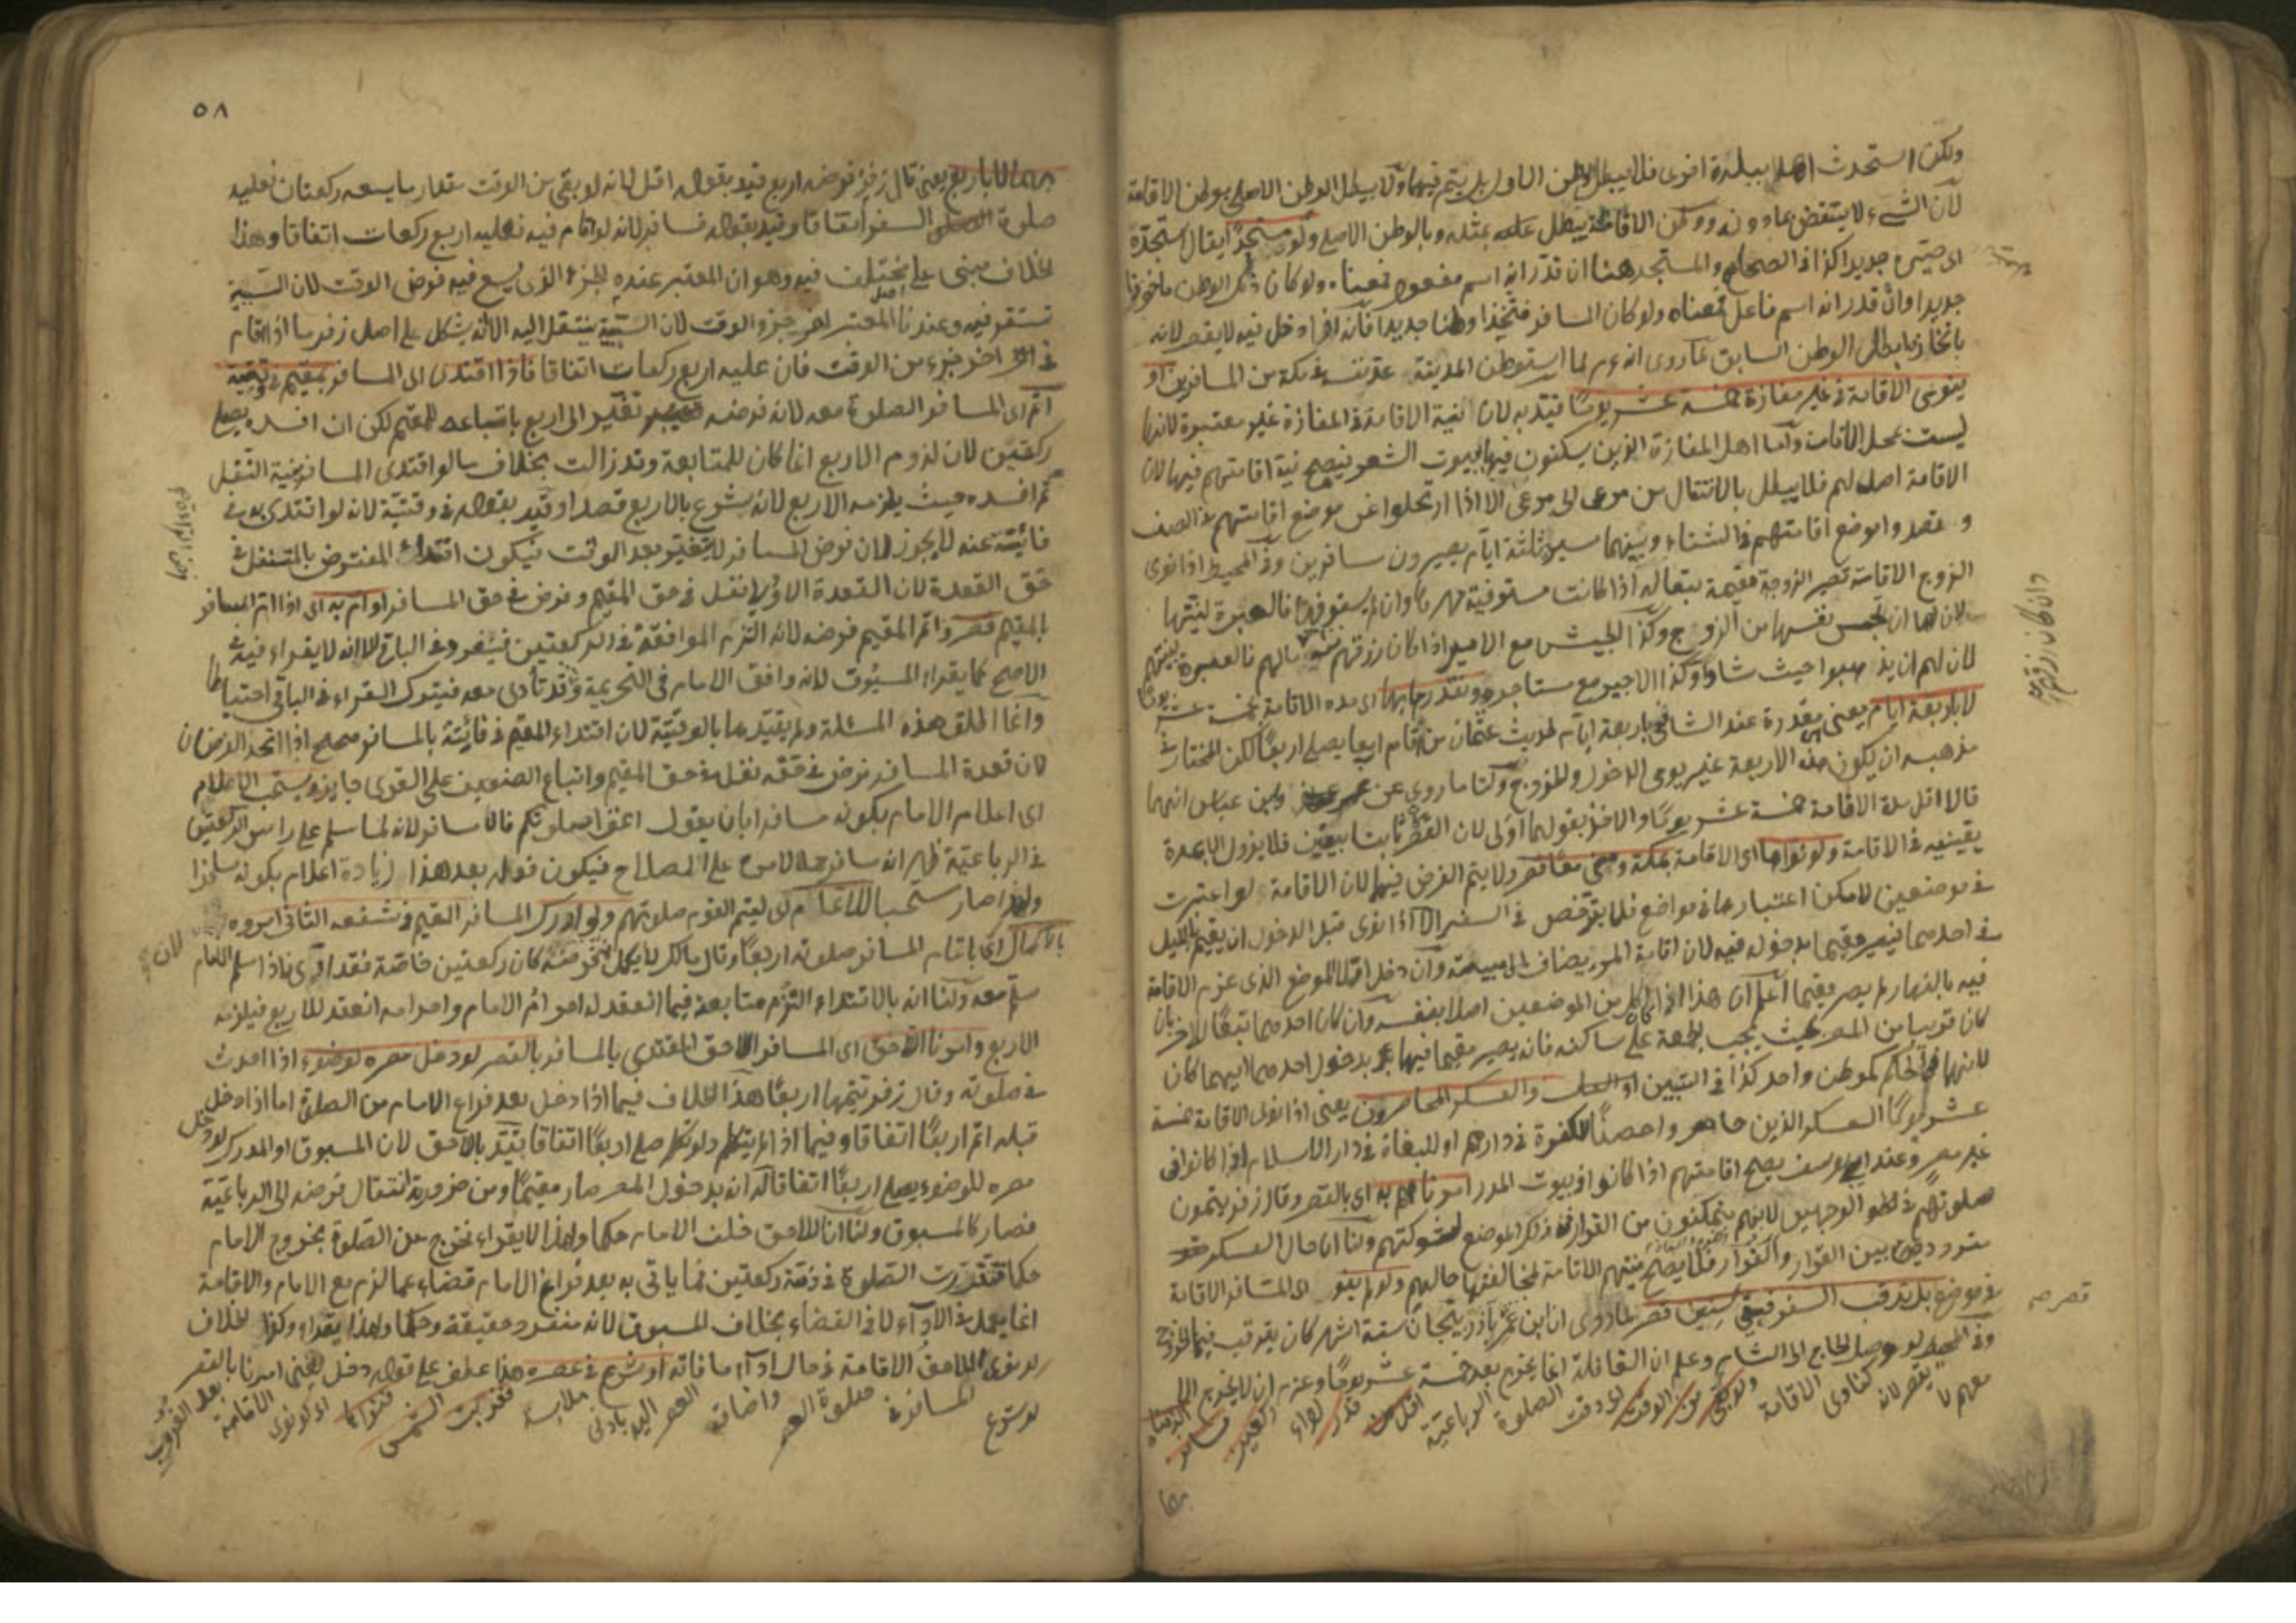 ولكن استحدث اهلا ببلدة اخرى فلا يبطل وطن الاول بل يتم فيهما ولا يبطل الوطن الاصلي بوطن الاقامة
لان الشيء لا ينتقض بما دونه ووطن الاقامة يبطل بمثله وبالوطن الاصلي ولو مستجدا يقال استجده
اى صيره جديدا كذا في الصحاح والمستجد هنا ان قدر انه اسم مفعول فمعناه ولو كان ذلك الوطن ماخوذا
جديدا وان قدر انه اسم فاعل فمعناه ولو كان المسافر متخذا وطنا جديدا فانه اذا دخل فيه لا يقصر لانه
باتخاذه ابطل الوطن السابق لما روى انه عم لما استوطن المدينة عد نفسه في مكة من المسافرين او
ينوي الاقامة في غير مفازة خمسة عشر يوما قيد به لان نية الاقامة في المفازة غير معتبرة لانها
ليست بمحل الاقامة واما اهل المفازة الذين يسكنون فيها بيوت الشعر فيصح نية اقامتهم فيها لان
الاقامة اصل لهم فلا يبطل بالانتقال من مرعى الى مرعى الا اذا ارتحلوا عن موضع اقامتهم في الصيف
وقصدوا موضع اقامتهم في الشتاء وبينهما مسيرة ثلثة ايام يصيرون مسافرين وفي المحيط اذا نوى
الزوج الاقامة تصير الزوجة مقيمة تبعا له اذا كانت مستوفية مهرها وان لم يستوف فالعبرة لنيتها
لان لها ان تحبس نفسها من الزوج وكذا الجيش مع الامير اذا كان رزقهم منه مالهم فالعبرة بنيتهم
لان لهم ان يذهبوا حيث شاؤا وكذا الاجير مع مستاجره ونقدرها بها اى مدة الاقامة بخمسة عشر يوما
لا باربعة ايام يعنى مقدرة عند الشافعي باربعة ايام لحديث عثمان من اقام اربعا يصلى اربعا لكن المختار في
مذهبه ان يكون هذه الاربعة غير يومى الدخول والخروج ولنا ما روى عن عمر وابن عباس انهما
قالا اقل مدة الاقامة خمسة عشر يوما والاخذ بقولهما اولى لان القصر ثابت بيقين فلا يزول الا بمدة
يقينية في الاقامة ولو نواها اى الاقامة بمكة ومنى معا قصر ولا يتم الفرض فيها لان الاقامة لو اعتبرت
في موضعين لامكن اعتبارها في مواضع فلا يترخص في السفر الا اذا نوى قبل الدخول ان يقيم بالليل
في احدهما فيصير مقيما بدخوله فيه لان اقامة المرء يضاف الى مبيته وان دخل اولا الموضع الذى عزم الاقامة
فيه بالنهار لم يصر مقيما اعلم ان هذا اذا كان كل من الموضعين اصلا بنفسه وان كان احدهما تبعا للاخر بان
كان قريبا من المصر بحيث يجب الجمعة على ساكنه فانه يصير مقيما فيها بدخول احدهما ايهما كان
لانها في الحكم كموطن واحد كذا في التبيين والعسكر المحاصرون يعنى اذا نوى الاقامة خمسة
عشر يوما العسكر الذين حاصروا حصنا للكفرة في دارهم او للبغاة في دار الاسلام اذا كانوا في
غير مصر وعند ابي يوسف يصح اقامتهم اذا كانوا في بيوت المدر امرناهم به اى بالقصر وقال زفر يتمون
صلوتهم في الوجهين لانهم متمكنون من القرار في ذلك الموضع لشوكتهم ولنا ان حال العسكر
متردد بين القرار والفرار فلا يصح نيتهم الاقامة لمخالفتها حالهم ولو لم ينو اى المسافر الاقامة
في موضع بل ترقب السفر فبقى سنين قصر لما روى ان ابن عمر باذربيجان ستة اشهر كان يترقب فيها الخروج
وفي المحيط لو وصل الحاج الى الشام وعلم ان القافلة انما يخرج بعد خمسة عشر يوما وعزم ان لا يخرج الا
معهم لا يقصر لانه كناوى الاقامة ولو بقى من الوقت اى وقت الصلوة الرباعية اقل من قدر اداء ركعتين فسافر الزمناه
بها
قصر صح
٥٨
بهما لا باربع يعنى قال زفر فرضه اربع قيد بقوله اقل لانه لو بقى من الوقت مقدار ما يسعه ركعتان فعليه
صلوة السفر اتفاقا وقيد بقوله فسافر لانه لو اقام فيه فعليه اربع ركعات اتفاقا وهذا
الخلاف مبنى على مختلف فيه وهو ان المعتبر عنده الجزء الذى يسع فيه فرض الوقت لان السببية
تستقر فيه وعندنا المعتبر اخر جزء الوقت لان السببية ينتقل اليه الا انه يشكل على اصل زفر ما اذا اقام
في اخر جزء من الوقت فان عليه اربع ركعات اتفاقا فاذا اقتدى اى المسافر بمقيم في وقتية
اتم اى المسافر الصلوة معه لانه فرضه تغير الى اربع باتباعه للمقيم لكن ان افسده يصلى
ركعتين لان لزوم الاربع انما كان للمتابعة وقد زالت بخلاف ما لو اقتدى المسافر بنية النفل
ثم افسده حيث يلزمه الاربع لانه شرع بالاربع قصدا وقيد بقوله في وقتية لانه لو اقتدى به في
فائتة عنه لا يجوز لان فرض المسافر لا يتغير بعد الوقت فيكون اقتداء المفترض بالمتنفل في
حق القعدة لان القعدة الاولى نفل في حق المقيم وفرض في حق المسافر او ام به اى اذا ام المسافر
بالمقيم قصر واتم المقيم فرضه لانه التزم الموافقة في الركعتين فينفرد في الباقى الا انه لا يقراء فيه في
الاصح كما يقراء المسبوق لانه وافق الامام في التحريمة وقد تأدى معه فيترك القراءة في الباقى احتياطا
وانما اطلق هذه المسئلة ولم يقيدها بالوقتية لان اقتداء المقيم في فائتة بالمسافر صحيح اذا اتحد الفرضان
لان قعدة المسافر فرض في حقه نفل في حق المقيم واتباع الضعيف على القوى جايز ويستحب الاعلام
اى اعلام الامام بكونه مسافرا بان يقول اتموا صلوتكم فانا مسافر لانه لما سلم على راس الركعتين
في الرباعية ظهر انه مسافر حملا لامره على الصلاح فيكون قوله بعد هذا زيادة اعلام بكونه مسافرا
ولهذا صار مستحبا للاعلام اى ليتم القوم صلوتهم ولو ادرك المسافر المقيم في شفعه الثانى امروه
بالاكمال اى باتمام المسافر صلوته اربعا وقال مالك لا يكمل لان تحريمته كان ركعتين خاصة فقد ادى فاذا سلم الامام
سلم معه ولنا انه بالاقتداء التزم متابعة فيما انعقد له احرام الامام واحرامه انعقد للاربع فيلزمه
الاربع وامرنا اللاحق اى المسافر اللاحق المقتدى بالمسافر بالقصر لو دخل مصره لوضوء اذا احدث
في صلوته وقال زفر يتمها اربعا هذا الخلاف فيما اذا دخل بعد فراغ الامام من الصلوة اما اذا دخل
قبله اتم اربعا اتفاقا وفيما اذا لم يتكلم ولو تكلم صلى اربعا اتفاقا قيد باللاحق لان المسبوق او المدرك لو دخل
مصره للوضوء يصلى اربعا اتفاقا له انه بدخول المصر صار مقيما ومن ضرورته انتقال فرضه الى الرباعية
فصار كالمسبوق ولنا ان اللاحق خلف الامام حكما ولهذا لا يقراء فخرج عن الصلوة بخروج الامام
حكما فتقررت الصلوة في ذمته ركعتين فما ياتى به بعد فراغ الامام قضاء عما لزم مع الامام والاقامة
انما يعمل في الاداء لا في القضاء بخلاف المسبوق لانه منفرد حقيقة وحكما ولهذا يقراء وكذا الخلاف
لو نوى اللاحق الاقامة في حال اداء ما فاته او شرع في عصره هذا عطف على قوله دخل يعنى امرنا بالقصر
لو شرع المسافر في صلوة العصر واضافة العصر اليه بادنى ملابسة فغربت الشمس فنواها اى لو نوى الاقامة بعد الغروب